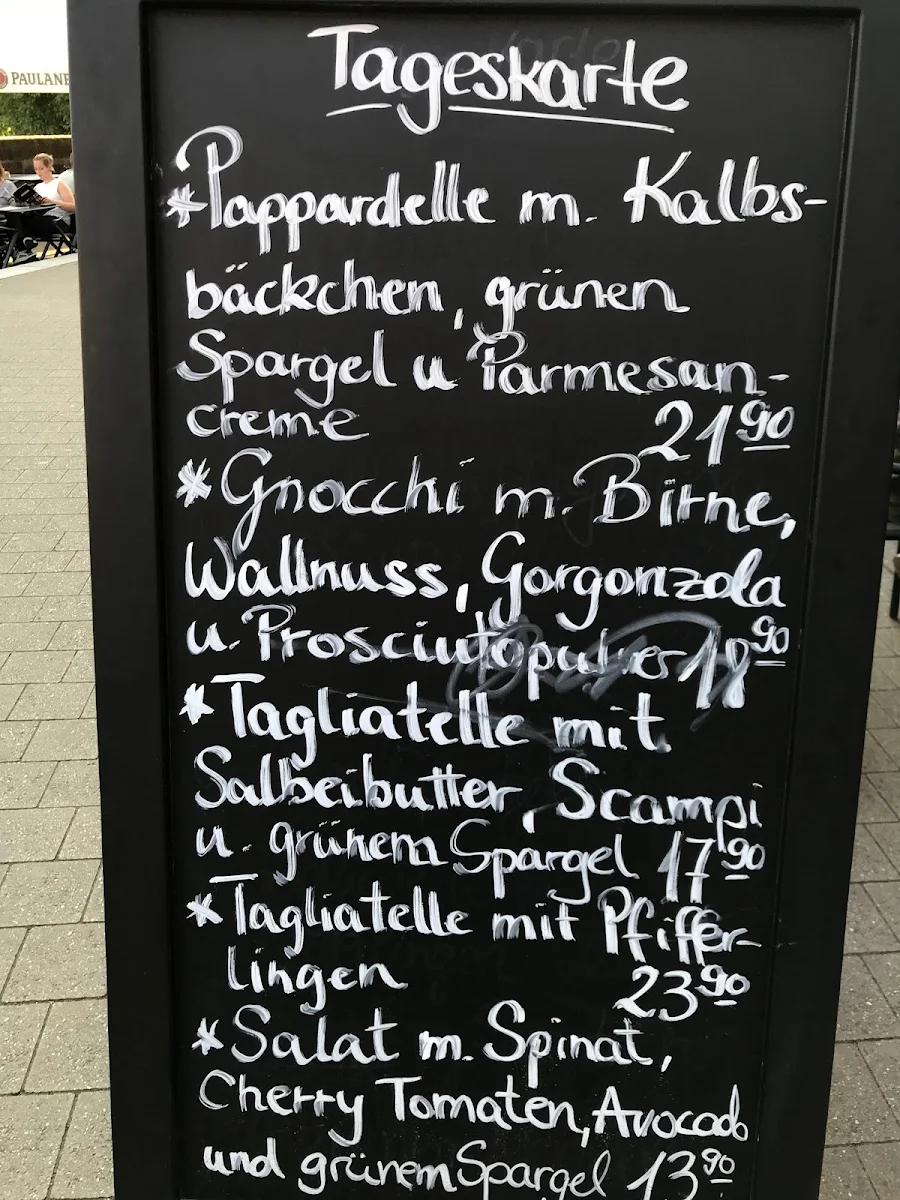 PAULANE
Tageskarte
*Pappardelle m. Kalbs-
bäckchen, grünen
Spargel u Parmesan-
creme 21 90
*Gnocchi m. Birne,
Wallnuss, Gorgonzola
u. Prosciuttopulver 18 90
*Tagliatelle mit
Salbeibutter, Scampi
u. grünem Spargel 17 90
*Tagliatelle mit Pfiffer-
lingen 23 90
*Salat m. Spinat,
Cherry Tomaten, Avocado
und grünem Spargel 13 90